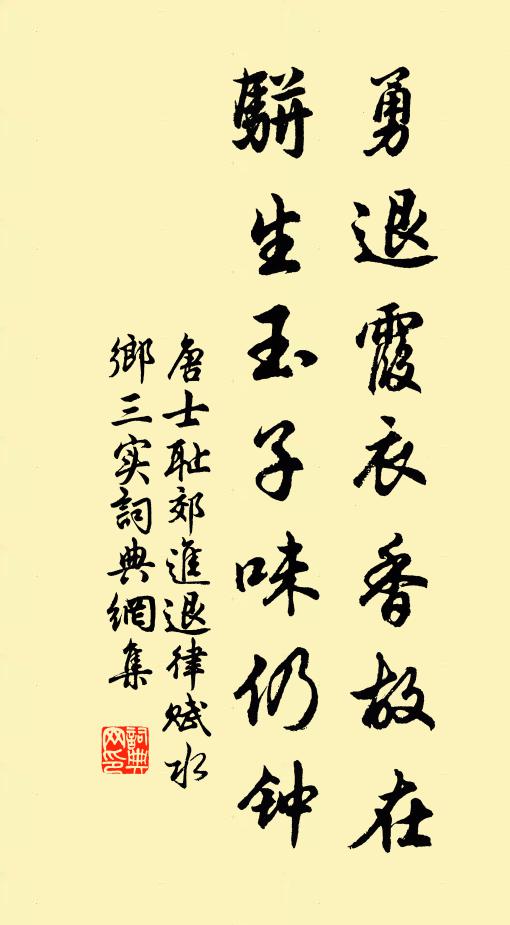 勇退霞衣香故在
骿生玉子味仍钟
唐士耻郊進退律赋水
鄉三实詞典網集
詞典網印